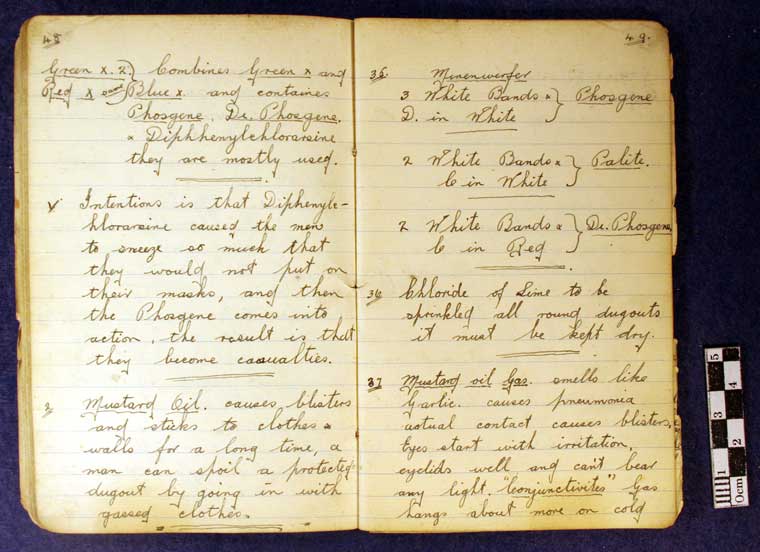 48
Green X. 2.) Combines Green X and
Red X same) Blue X. and containes
Phosgene, Di. Phosgene,
& Diphhenylchlorarsine
they are mostly used.
√ Intentions is that Diphenyle-
hlorarsine caused the men
to sneeze so much that
they would not put on
their masks, and then
the Phosgene comes into
action, the result is that
they become casualties.
3 Mustard Oil. causes blisters
and sticks to clothes &
walls for a long time, a
man can spoil a protected
dugout by going in with
gassed clothes.
49.
35. Minenwerfer
3 White Bands & } Phosgene
D. in White
2 White Bands & } Palite.
C in White
2 White Bands & } Di. Phosgene
C in Red
36 Chloride of Lime to be
sprinkled all round dugouts
it must be kept dry.
37 Mustard oil Gas. smells like
Garlic. causes pneumonia
actual contact causes blisters,
Eyes start with irritation,
eyelids well and can't bear
any light. "Conjunctivites" Gas
hangs about more on cold
5
4
3
2
1
0cm